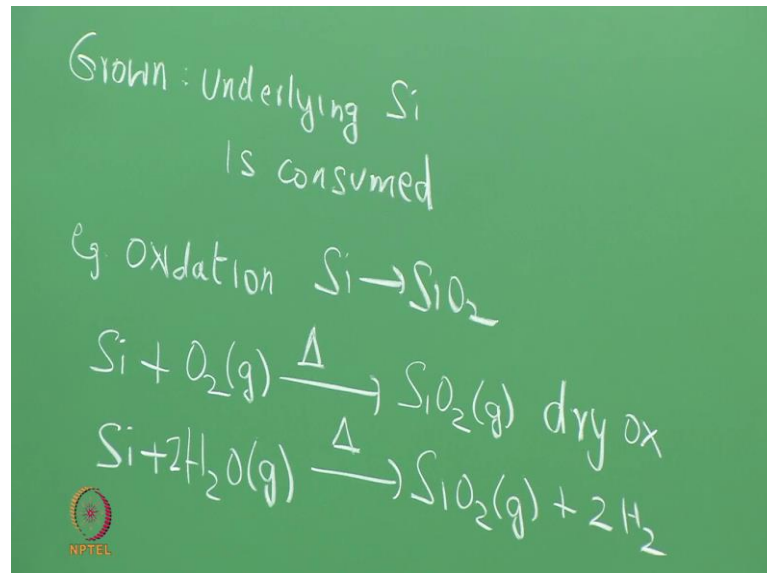 Grown: Underlying Si
Is consumed
eg. Oxdation Si → SiO₂
Si + O₂(g) —Δ→ SiO₂(g) dry ox
Si+2H₂O(g) —Δ→ SiO₂(g) + 2H₂
NPTEL